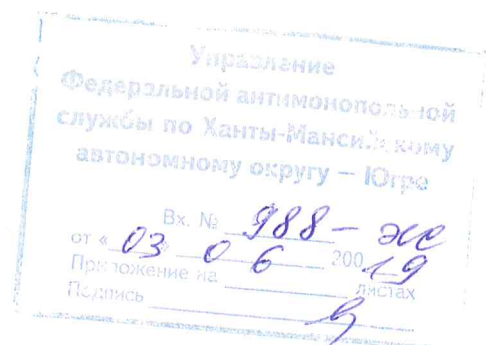 Управление
Федеральной антимонопольной
службы по Ханты-Мансийскому
автономному округу – Югре
Вх. № 988 – эс
от « 03 » 06 200 19
Приложение на листах
Подпись